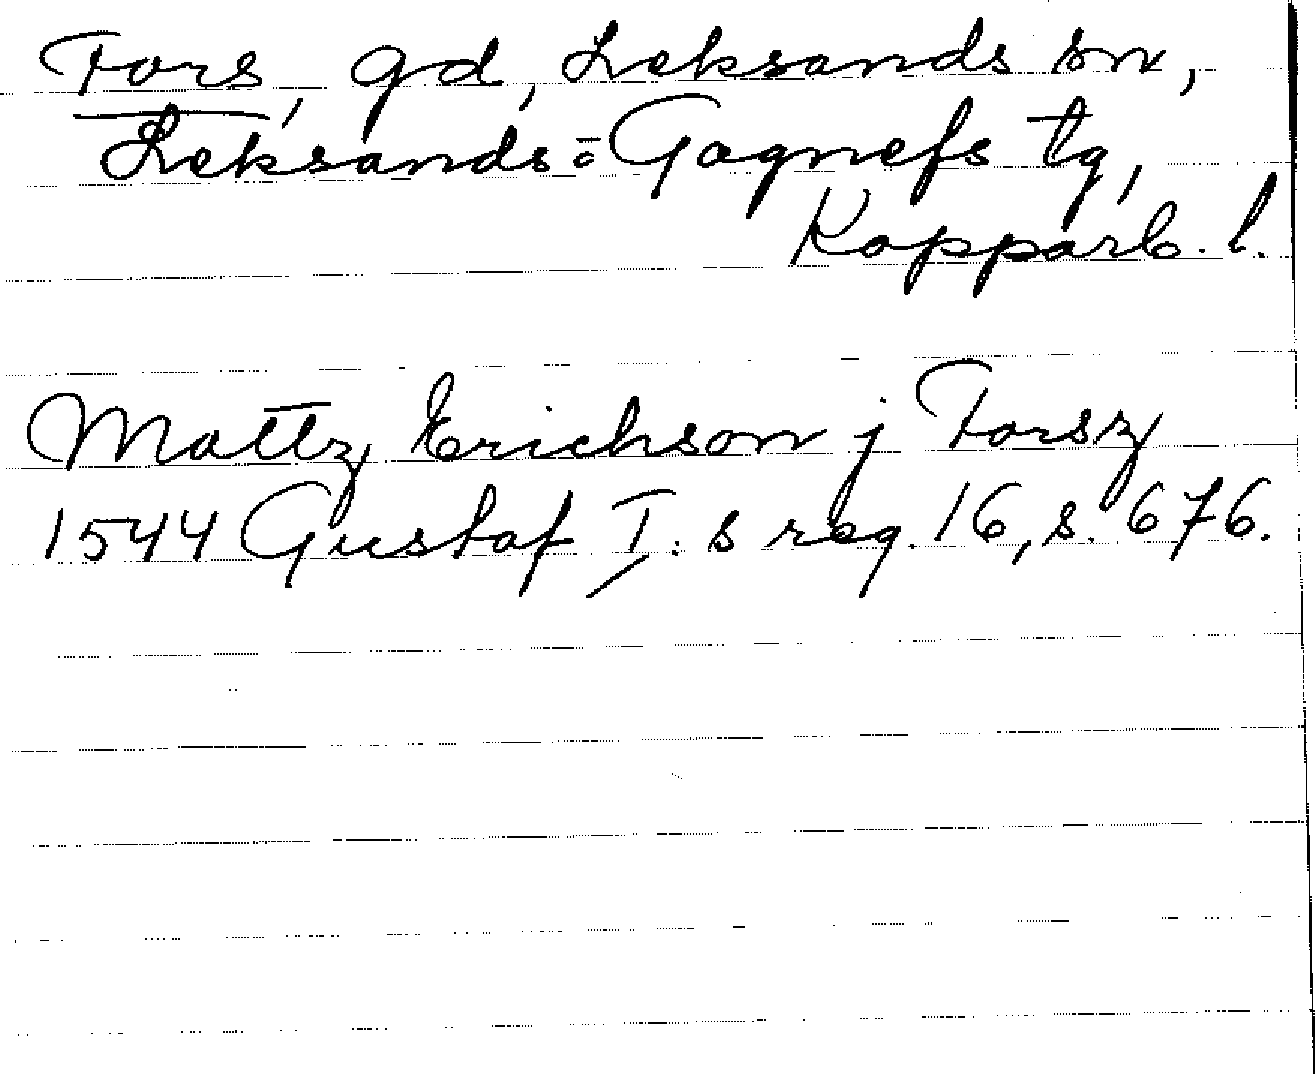 Fors, gd, Leksands sn,
Leksands- o Gagnefs tg,
Kopparb. l.
Mattz Erichson j Forsz
1544 Gustaf I:s reg. 16, s. 676.